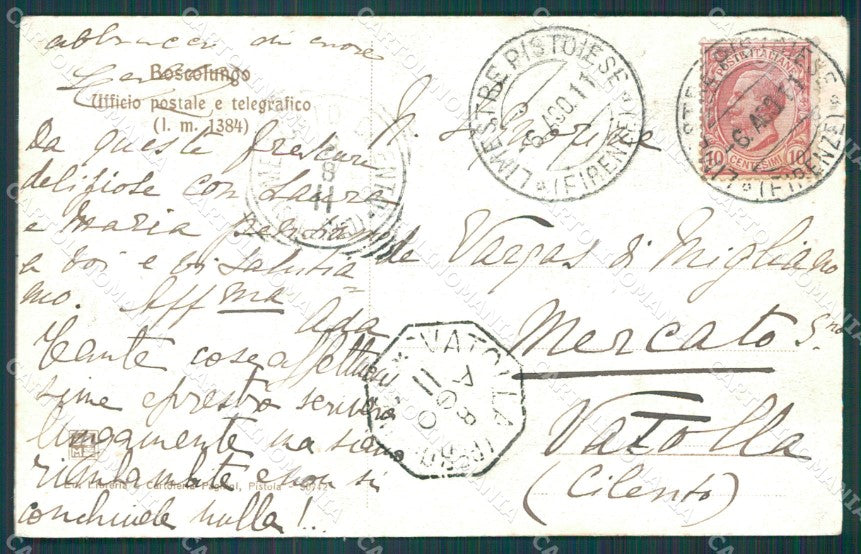 abbracci di cuore
Boscolungo
Ufficio postale e telegrafico
(l. m. 1384)
Da queste frescure
deliziose con Laura
e Maria pensiamo
a voi e vi salutia=
mo. Aff ma
Ada
Tante cose affettuo
sime e presto scriverò
lungamente ma siamo
e non si
conchiude nulla!..
Ed. Libreria e Cartoleria Pagnini, Pistoia -
LIMESTRE PISTOIESE
6 AGO 11
(FIRENZE)
POSTE ITALIANE
10 CENTESIMI 10
LIMESTRE PISTOIESE
6 AGO 11
(FIRENZE)
8
11
N. S.
de Vargas di Migliano
Mercato S.no
Vatolla
(Cilento)
VATOLLA
11
8
CARTOLINOMANIA